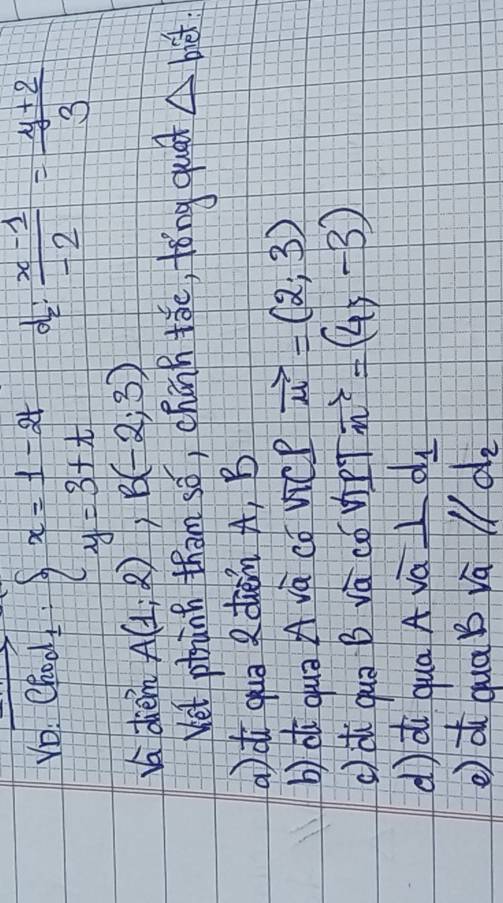 VD: Cho d₁: { x = 1 - 2t   d₂: (x - 1)/(-2) = (y + 2)/3
y = 3 + t
Và điểm A(1; 2), B(-2; 3)
Viết ptrình tham số, chính tắc, tổng quát △ biết:
a) đi qua 2 điểm A, B
b) đi qua A và có VTCP u⃗ = (2; 3)
c) đi qua B và có VTPT n⃗ = (4; -3)
d) đi qua A và ⊥ d₁
e) đi qua B và // d₂